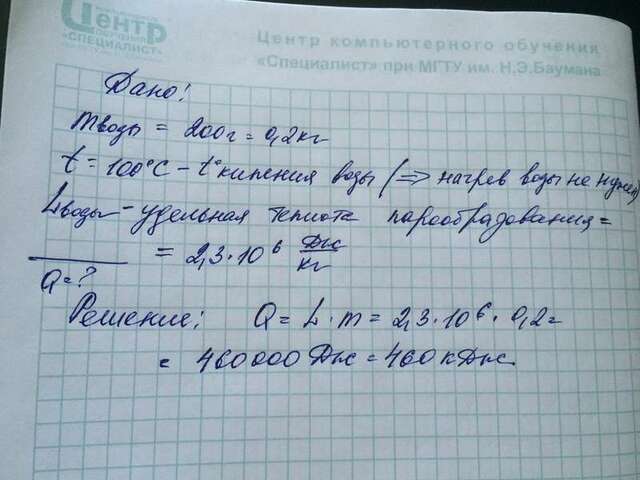 Центр
«СПЕЦИАЛИСТ»
Центр компьютерного обучения
«Специалист» при МГТУ им. Н.Э.Баумана
Дано:
mводы = 200г = 0,2кг
t = 100°C - t° кипения воды (=> нагрев воды не нужен)
Lводы - удельная теплота парообразования =
= 2,3·10⁶ Дж/кг
Q = ?
Решение: Q = L·m = 2,3·10⁶·0,2=
= 460000 Дж = 460 кДж.